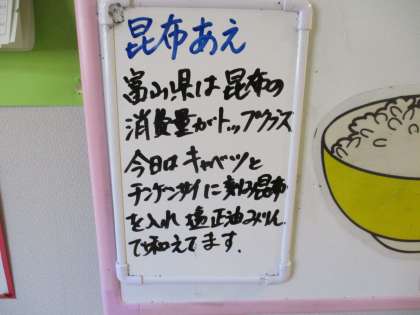 昆布あえ
富山県は昆布の
消費量がトップクラス
今日は キャベツと
チンゲンサイに刻み昆布
を入れ 塩 正油 みりん
で和えてます.